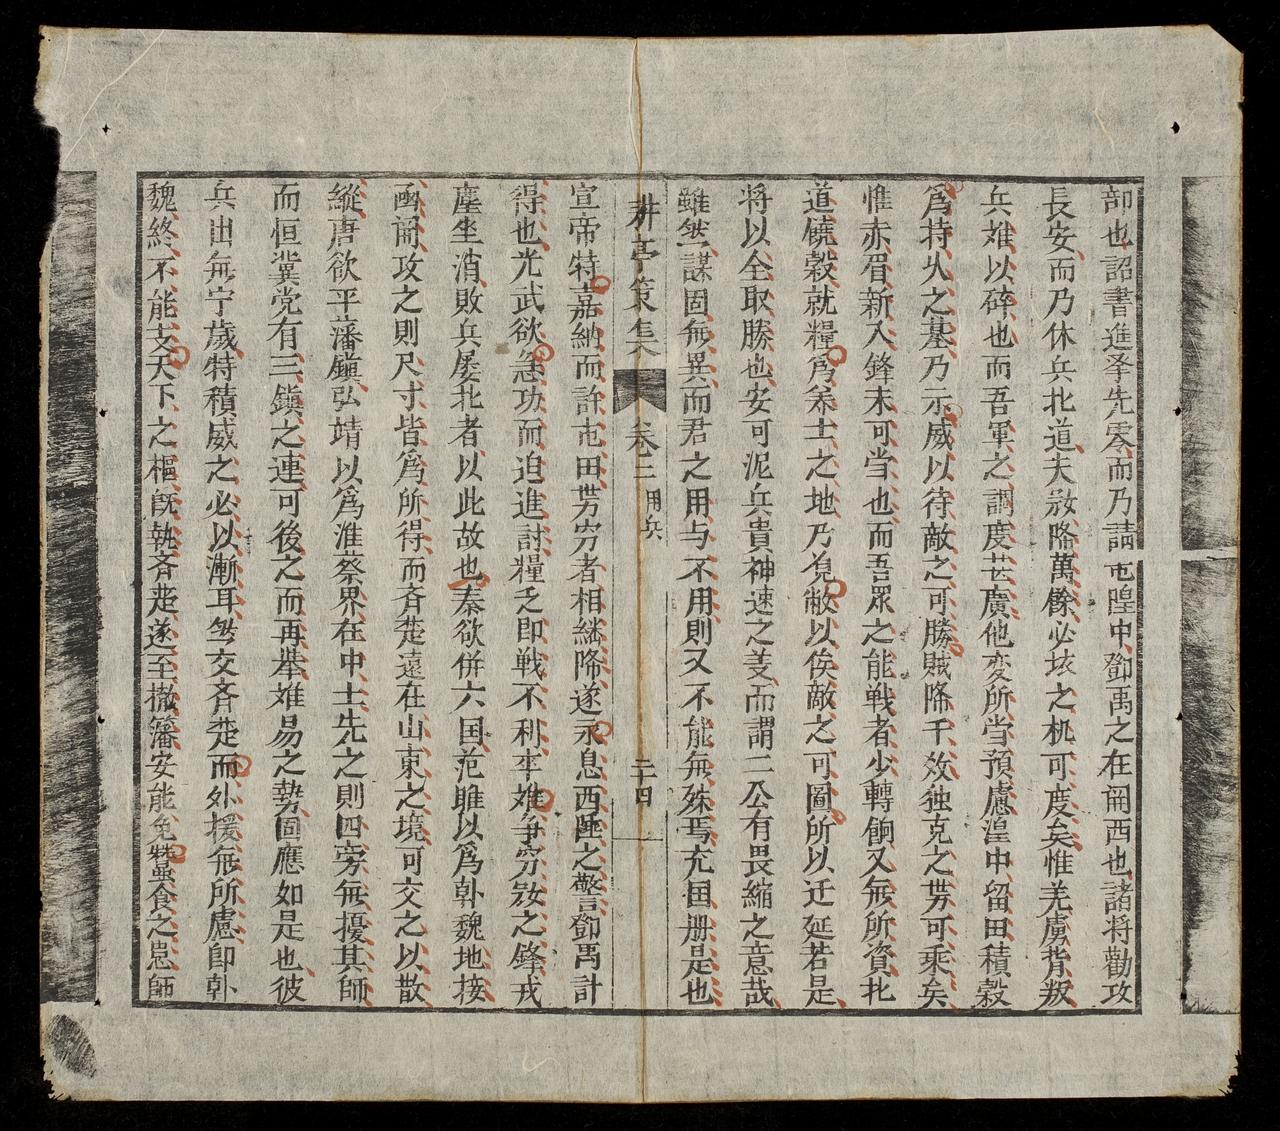 部也詔書進夆先零而乃請屯隍中鄧禹之在関西也諸将勸攻
長安而乃休兵北道夫寇降萬餘必垓之机可度矣惟羌虜背叛
兵难以碎也而吾軍之調度甚廣他変所当預慮湟中留田積穀
為持久之基乃示威以待敵之可勝賊降千效独克之势可乘矣
惟赤眉新入鋒未可当也而吾眾之能戦者少轉餉又無所資北
道饒穀就糧為养士之地乃覓敝以俟敵之可圖所以迁延若是
将以全取勝也安可泥兵貴神速之芰而謂二公有畏縮之意哉
雖然謀固無異而君之用与不用則又不能無殊焉充国册是也
耕亭策集 卷二 用兵 二十四
宣帝特嘉納而許屯田势穷者相繼降遂永息西陲之警鄧禹計
得也光武欲急功而迫進討糧乏即戦不利率难争穷寇之鋒戎
塵坐消敗兵屡北者以此故也秦欲併六国范雎以為韩魏地接
凾関攻之則尺寸皆為所得而斉楚遠在山東之境可交之以散
縦唐欲平藩鎮弘靖以為淮蔡界在中土先之則四旁無擾其師
而恒冀党有三鎮之連可後之而再举难易之勢固應如是也彼
兵出無宁歲特積威之必以漸耳然交斉楚而外援無所慮即韩
魏終不能支天下之樞既執斉楚遂至撤籓安能免蠶食之患師